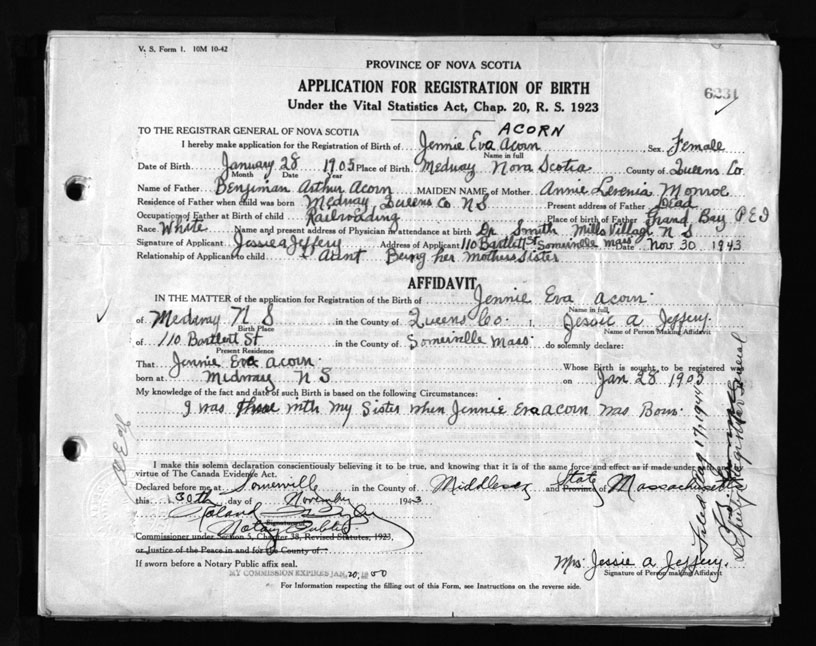 V. S. Form 1. 10M 10-42
PROVINCE OF NOVA SCOTIA
APPLICATION FOR REGISTRATION OF BIRTH
6231
Under the Vital Statistics Act, Chap. 20, R. S. 1923
ACORN
TO THE REGISTRAR GENERAL OF NOVA SCOTIA
I hereby make application for the Registration of Birth of Jennie Eva Acorn, Sex Female
Name in full
Date of Birth January 28 1905 Place of Birth Medway Nova Scotia County of Queens Co
Month Date Year
Name of Father Benjiman Arthur Acorn MAIDEN NAME of Mother Annie Levenia Monroe
Residence of Father when child was born Medway Queens Co N S Present address of Father Dead
Occupation of Father at Birth of child Railroading Place of birth of Father Grand Bay P E I
Race White Name and present address of Physician in attendance at birth Dr Smith Mills Village N S
Signature of Applicant Jessie a Jeffery Address of Applicant 110 Bartlett St Somerville Mass Date Nov 30 1943
Relationship of Applicant to child Aunt Being her Mothers Sister
AFFIDAVIT
IN THE MATTER of the application for Registration of the Birth of Jennie Eva Acorn
Name in full,
of Medway N S in the County of Queens Co. I, Jessie A Jeffery.
Birth Place Name of Person Making Affidavit
of 110 Bartlett St in the County of Somerville Mass. do solemnly declare:
Present Residence
That Jennie Eva Acorn Whose Birth is sought to be registered was
born at Medway N S on Jan 28 1905
My knowledge of the fact and date of such Birth is based on the following Circumstances:
I was with My Sister when Jennie Eva Acorn was Born
I make this solemn declaration conscientiously believing it to be true, and knowing that it is of the same force and effect as if made under oath and
virtue of The Canada Evidence Act.
Declared before me at Somerville in the County of Middlesex and Province of State Massachusetts
this 30th day of November 1943
Roland
Notary Public
Commissioner under Section 5, Chapter 38, Revised Statutes, 1923,
or Justice of the Peace in and for the County of
If sworn before a Notary Public affix seal.
MY COMMISSION EXPIRES JAN. 20, 1950
Mrs. Jessie A Jeffery.
Signature of Person making Affidavit
For Information respecting the filling out of this Form, see Instructions on the reverse side.
Deputy Registrar General